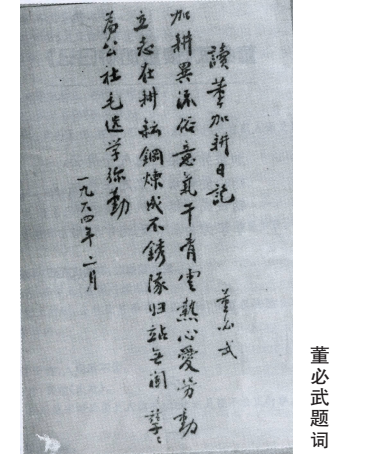 讀董加耕日記
董必武
加耕異流俗意氣干青雲熱心愛勞動
立志在耕耘鋼煉成不銹隊归站無 孳〻
為公社毛选学弥勤
一九六四年二月
董必武题词